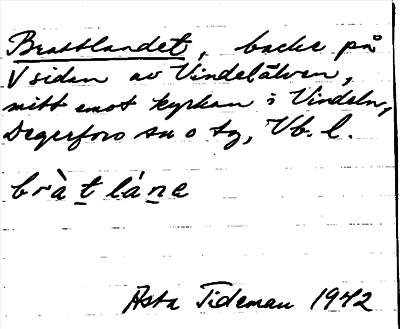 Brattlandet, backe på
V sidan av Vindelälven,
mitt emot kyrkan i Vindeln,
Degerfors sn o tg, Vb. l.
bràt láne
Asta Tideman 1942